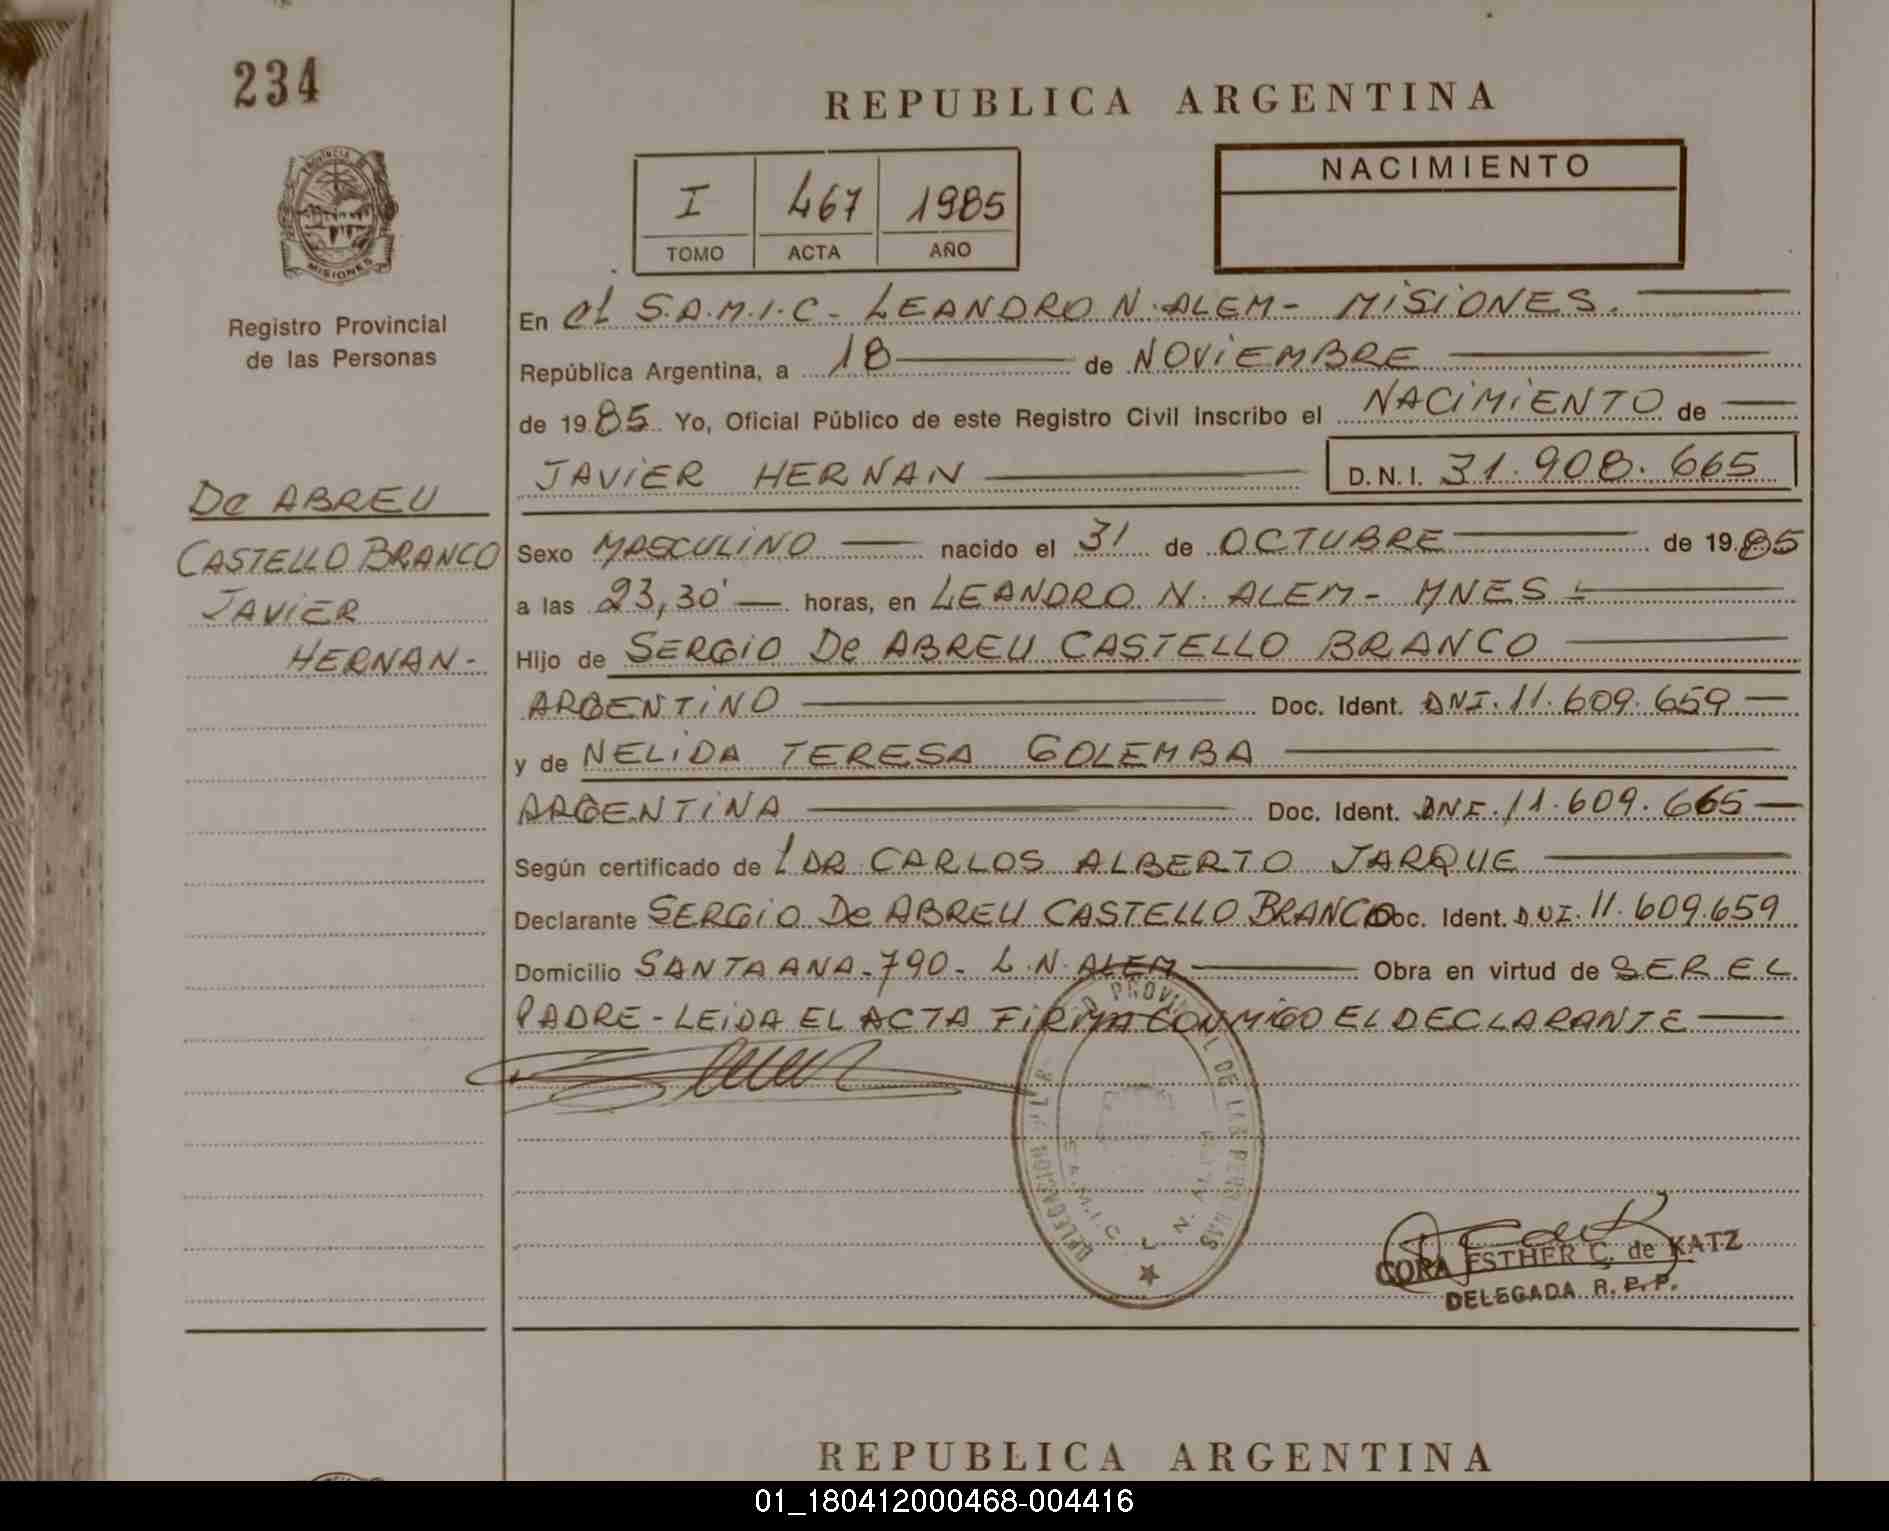 234
REPUBLICA ARGENTINA
PROVINCIA DE
MISIONES
Registro Provincial
de las Personas
I 467 1985
TOMO ACTA AÑO
NACIMIENTO
En el S.A.M.I.C - LEANDRO N. ALEM - MISIONES.
República Argentina, a 18 de NOVIEMBRE
de 1985 Yo, Oficial Público de este Registro Civil inscribo el NACIMIENTO de
JAVIER HERNAN D.N.I. 31.908.665
De ABREU
CASTELLO BRANCO
JAVIER
HERNAN-
Sexo MASCULINO nacido el 31 de OCTUBRE de 1985
a las 23,30' horas, en LEANDRO N. ALEM - MNES -
Hijo de SERGIO De ABREU CASTELLO BRANCO
ARGENTINO Doc. Ident. DNI. 11.609.659
y de NELIDA TERESA GOLEMBA
ARGENTINA Doc. Ident. DNI. 11.609.665
Según certificado de DR CARLOS ALBERTO JARQUE
Declarante SERGIO De ABREU CASTELLO BRANCO Doc. Ident. D.N.I. 11.609.659
Domicilio SANTA ANA - 790 - L.N. ALEM Obra en virtud de SER EL
PADRE - LEIDA EL ACTA FIRMA CONMIGO EL DECLARANTE
PROVINCIAL DE LAS PERSONAS
DELEGACION
S.A.M.I.C. L. N. ALEM
CORA ESTHER C. de KATZ
DELEGADA R.P.P.
REPUBLICA ARGENTINA
01_180412000468-004416